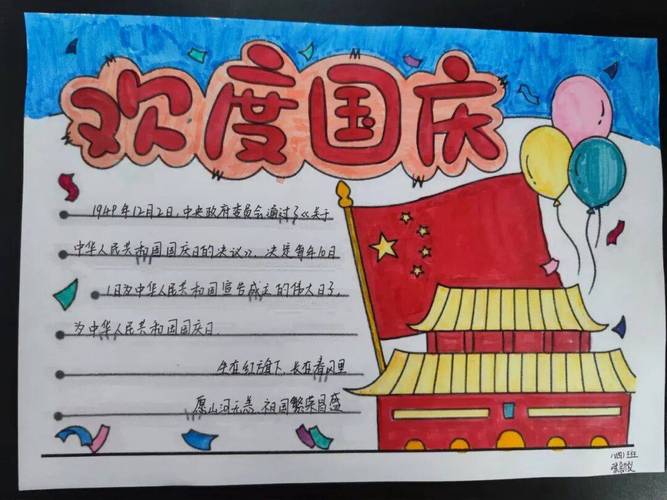 欢度国庆
1949年12月2日,中央政府委员会通过了《关于
中华人民共和国国庆日的决议》,决定每年10月
1日为中华人民共和国宣告成立的伟大日子,
为中华人民共和国国庆日.
生在红旗下,长在春风里
愿山河无恙,祖国繁荣昌盛